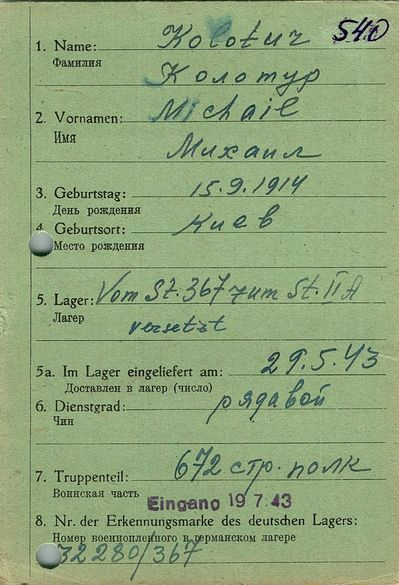 540
1. Name: Kolotur
Фамилия Колотур
2. Vornamen: Michail
Имя Михаил
3. Geburtstag: 15.9.1914
День рождения
4. Geburtsort: Киев
Место рождения
5. Lager: Vom St. 367 zum St. II A
Лагер versetzt
5a. Im Lager eingeliefert am: 29.5.43
Доставлен в лагер (число)
6. Dienstgrad: рядавой
Чин
7. Truppenteil: 672 стр. полк
Воинская часть Eingang 19 7.43
8. Nr. der Erkennungsmarke des deutschen Lagers:
Номер военнопленного в германском лагере
32280/367